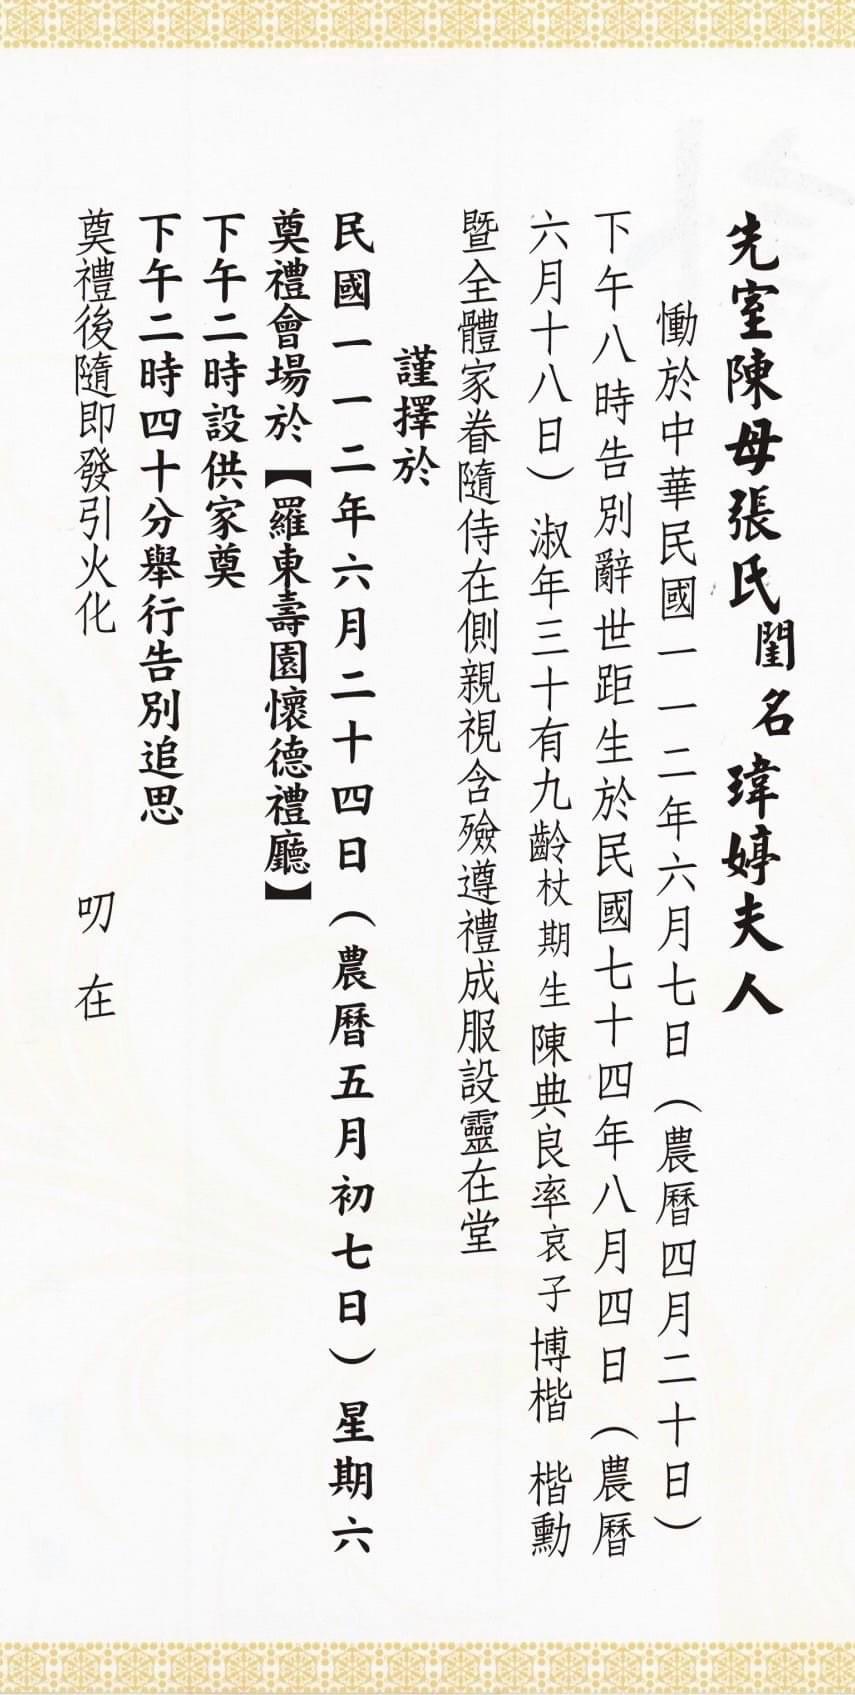 先室陳母張氏閨名瑋婷夫人
慟於中華民國一一二年六月七日（農曆四月二十日）
下午八時告別辭世距生於民國七十四年八月四日（農曆
六月十八日）淑年三十有九齡杖期生陳典良率哀子博楷 楷勳
暨全體家眷隨侍在側親視含殮遵禮成服設靈在堂
謹擇於
民國一一二年六月二十四日（農曆五月初七日）星期六
奠禮會場於【羅東壽園懷德禮廳】
下午二時設供家奠
下午二時四十分舉行告別追思
奠禮後隨即發引火化 叨在